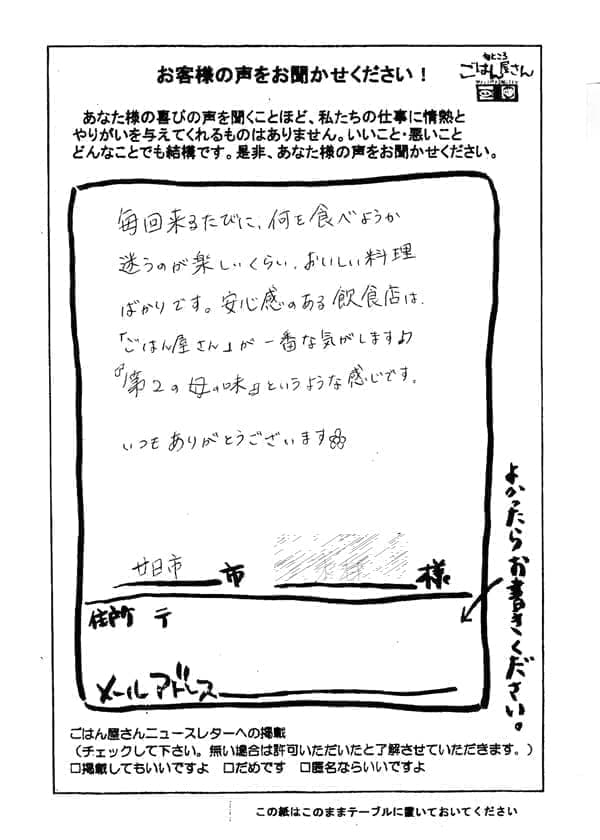 お客様の声をお聞かせください！
旬どころ
ごはん屋さん
あなた様の喜びの声を聞くことほど、私たちの仕事に情熱と
やりがいを与えてくれるものはありません。いいこと・悪いこと
どんなことでも結構です。是非、あなた様の声をお聞かせください。
毎回来るたびに、何を食べようか
迷うのが楽しいくらい、おいしい料理
ばかりです。安心感のある飲食店は、
「ごはん屋さん」が一番な気がします♪
『第2の母の味』というような感じです。
いつもありがとうございます
廿日市 市 様
住所 〒
メールアドレス
よかったらお書きください。
ごはん屋さんニュースレターへの掲載
（チェックして下さい。無い場合は許可いただいたと了解させていただきます。）
□掲載してもいいですよ □だめです □匿名ならいいですよ
この紙はこのままテーブルに置いておいてください